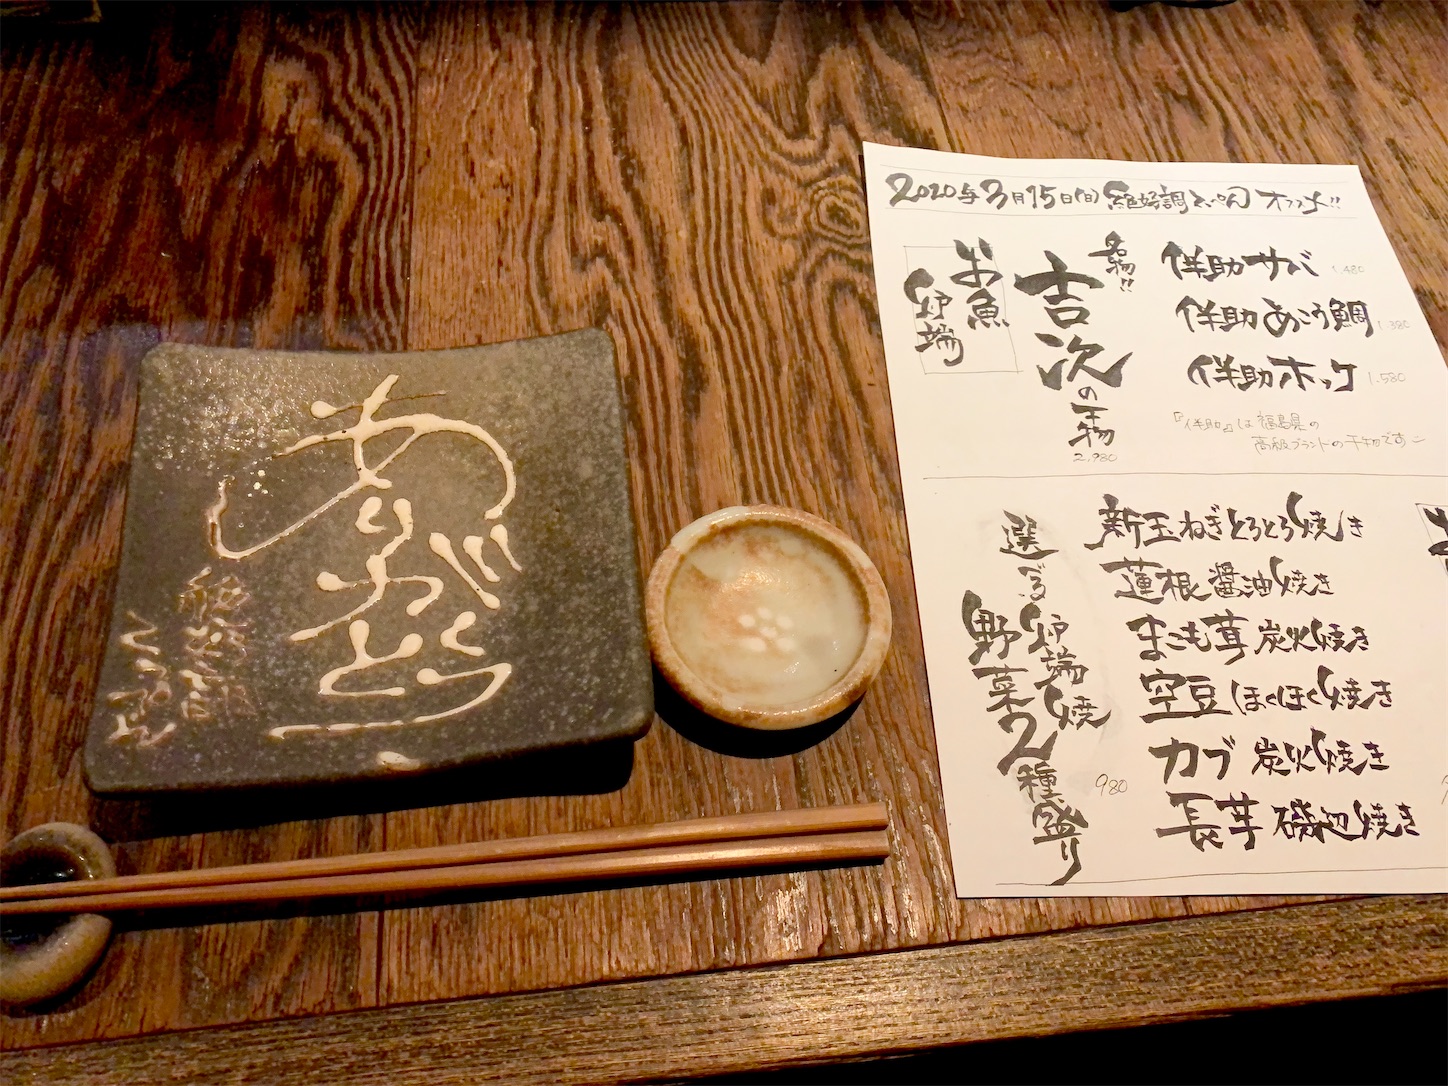 ありがとう
絶好調
てっぺん
2020年3月15日(日)絶好調てっぺん オススメ!!
お魚
炉端
名物!!
吉次の干物
2,980
伴助サバ 1,480
伴助あこう鯛 1,380
伴助ホッケ 1,580
『伴助』は福島県の
高級ブランドの干物です
選べる
炉端焼
野菜2種盛り
980
新玉ねぎとろとろ焼き
蓮根醤油焼き
まこも茸炭火焼き
空豆ほくほく焼き
カブ炭火焼き
長芋磯辺焼き